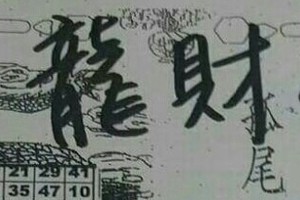 龍財
尾
21 29 41
35 47 10